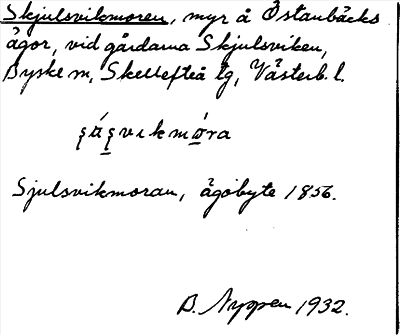 Skjulsvikmoren, myr å Östanbäcks
ägor, vid gårdarna Skjulsviken,
Byske sn, Skellefteå tg, Västerb. l.
Sjulsvikmoran, ägobyte 1856.
B. Nyman 1932.